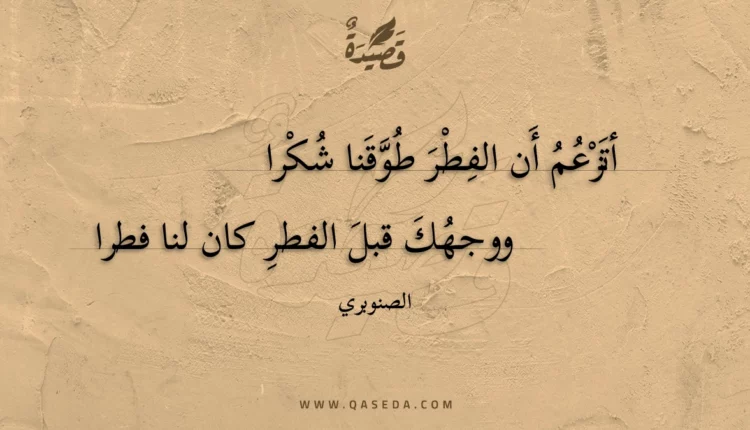 قَصِيدَةٌ
أتَزْعُمُ أَن الفِطْرَ طُوَّقَنا شُكْرا
ووجهُكَ قبلَ الفطرِ كان لنا فطرا
الصنوبري
WWW.QASEDA.COM